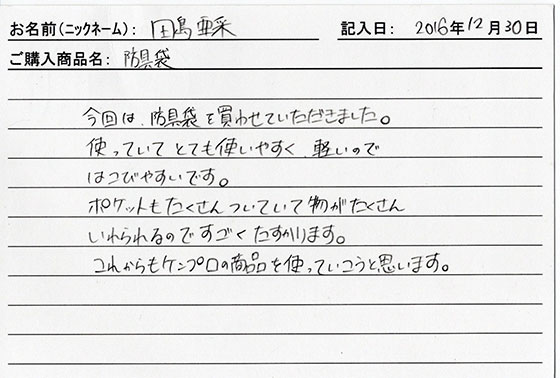 お名前(ニックネーム): 田島亜采 記入日: 2016年12月30日
ご購入商品名: 防具袋
今回は、防具袋を買わせていただきました。
使っていて とても使いやすく、軽いので
はこびやすいです。
ポケットもたくさんついていて物がたくさん
いれられるのですごくたすかります。
これからもケンプロの商品を使っていこうと思います。